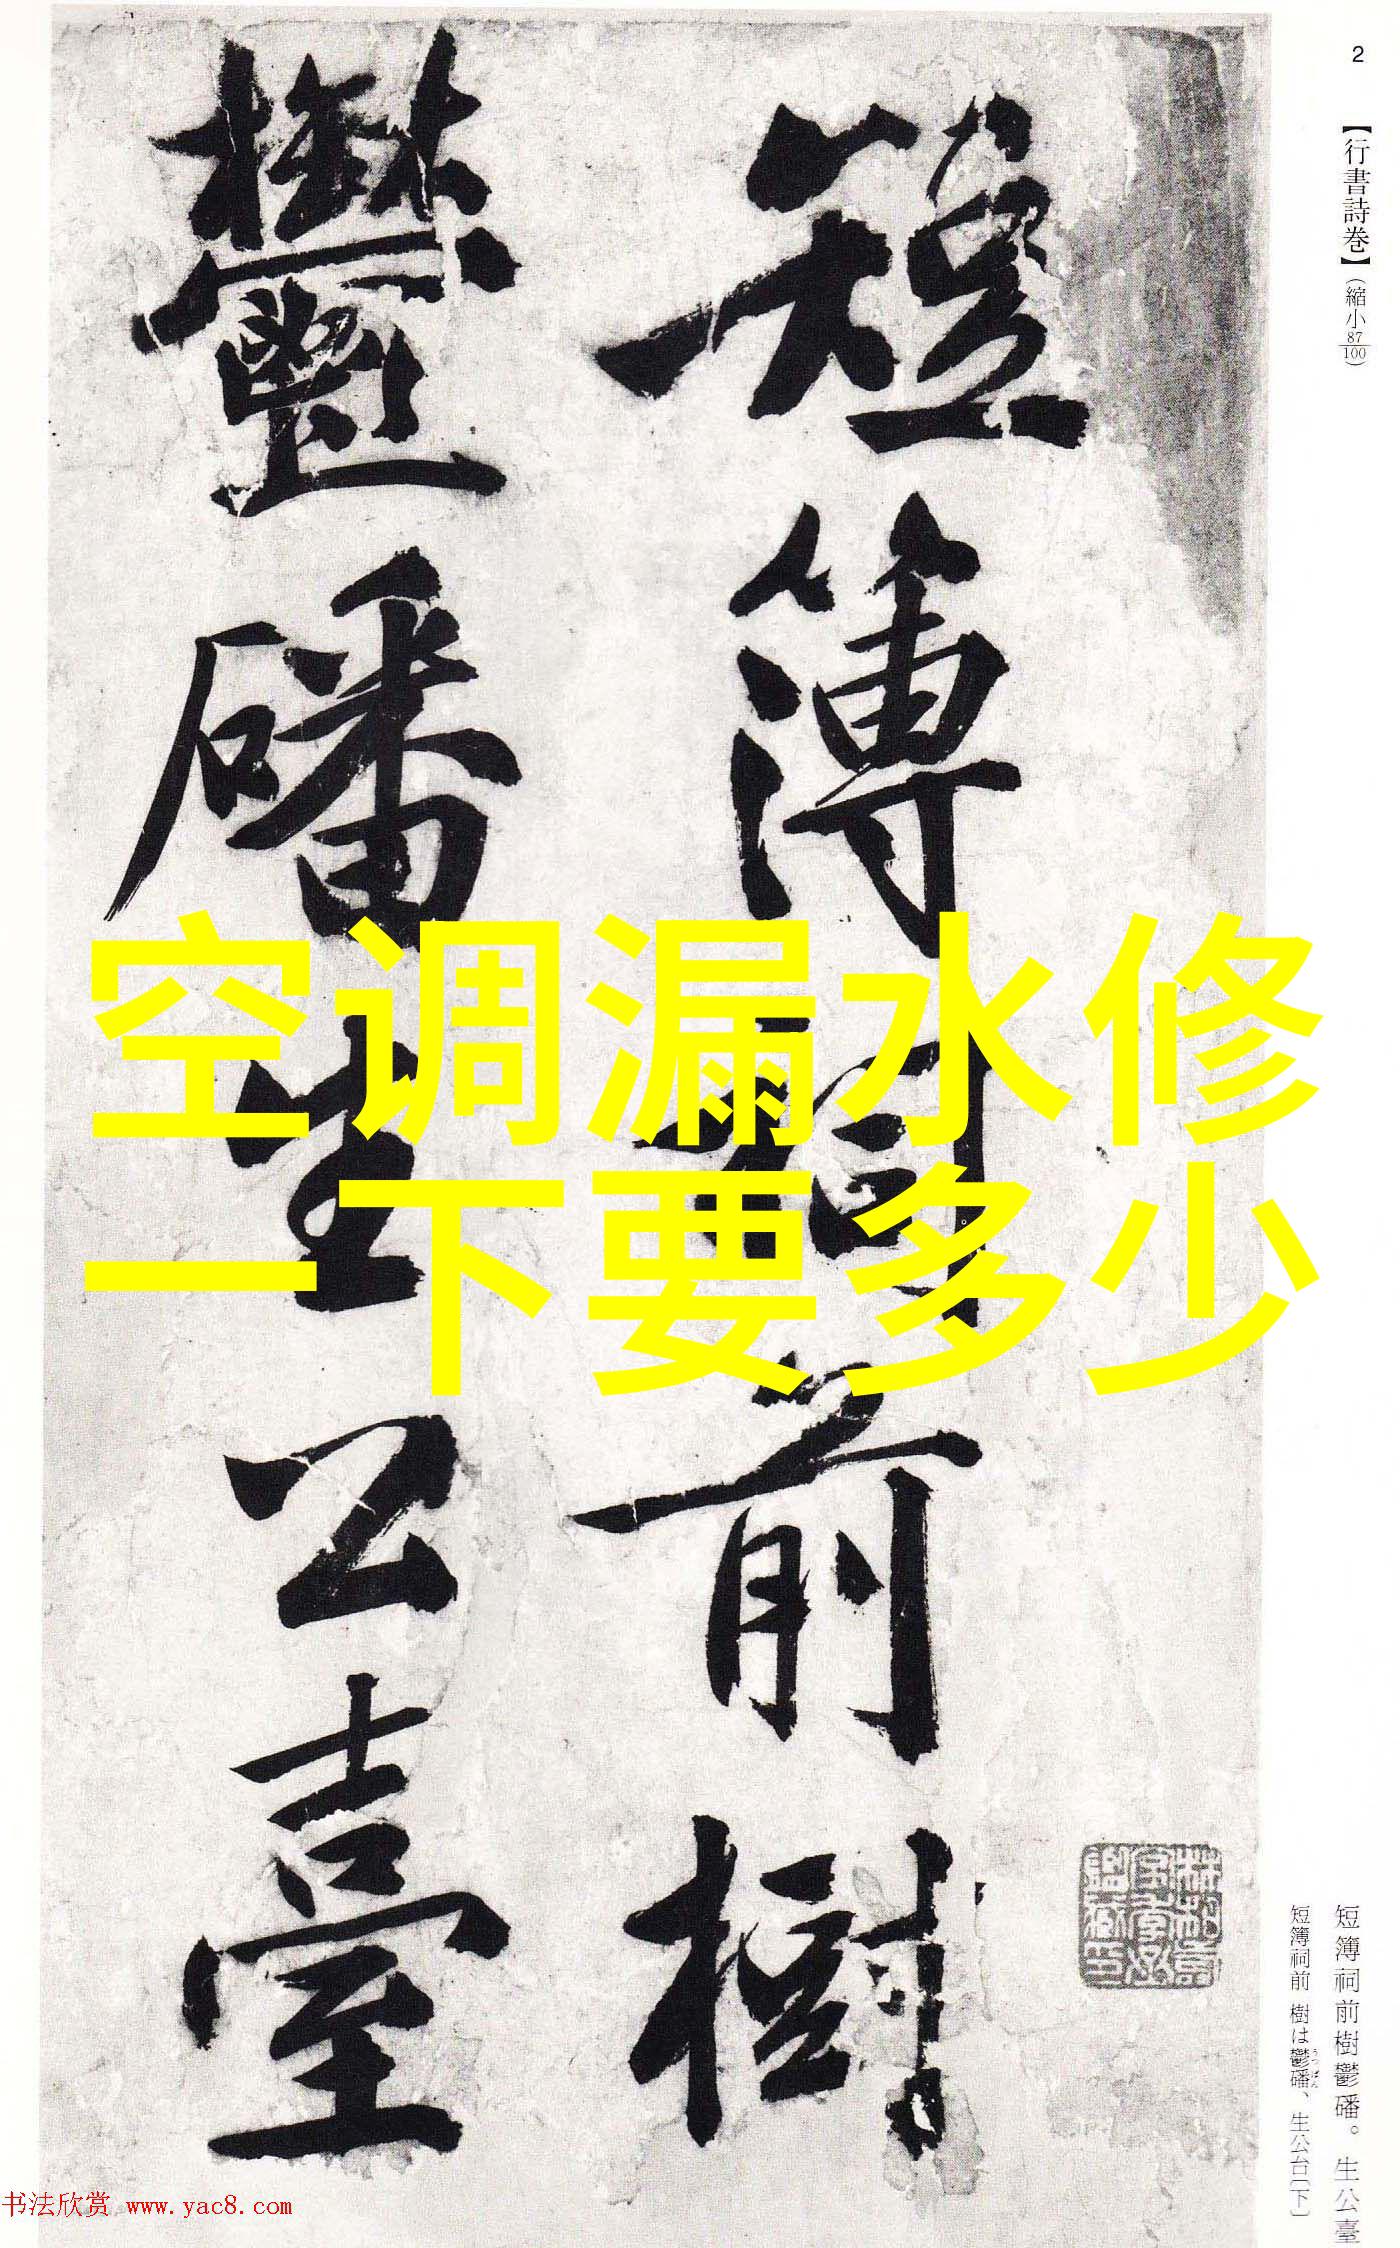 2
【行書詩巻】(縮小87/100)
短簿祠前樹
鬱磻生公臺
空调漏水修
一下要多少
短簿祠前樹鬱磻。生公臺
短簿祠前 樹は鬱磻、生公台〔下〕
うっぱん
书法欣赏 www.yac8.com